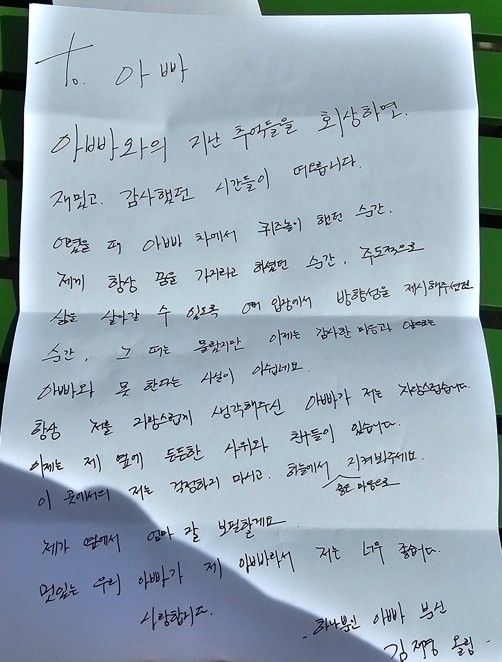 to. 아빠
아빠와의 지난 추억들을 회상하면.
재밌고. 감사했던 시간들이 떠오릅니다.
어렸을 때 아빠 차에서 퀴즈놀이 했던 순간.
제게 항상 꿈을 가지라고 하셨던 순간. 주도적으로
삶을 살아갈 수 있도록 입장에서 방향성을 제시해주셨던
순간. 그 때는 몰랐지만 이제는 감사한 마음과 앞으로는
아빠와 못 한다는 사실이 아쉽네요.
항상 저를 자랑스럽게 생각해주신 아빠가 저는 자랑스럽습니다.
이제는 제 옆에 든든한 사위와 친구들이 있습니다.
이 곳에서의 저는 걱정하지 마시고. 하늘에서 좋은 마음으로 지켜봐주세요.
제가 옆에서 엄마 잘 보필할게요.
멋있는 우리 아빠가 제 아빠라서 저는 너무 좋습니다.
사랑합니다.
- 하나뿐인 아빠 분신
김 올림 -